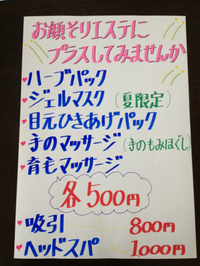 お顔そりエステに
プラスしてみませんか
ハーブパック
ジェルマスク（夏限定）
目元ひきあげパック
手のマッサージ（手のもみほぐし）
育毛マッサージ
各500円
吸引 800円
ヘッドスパ 1000円